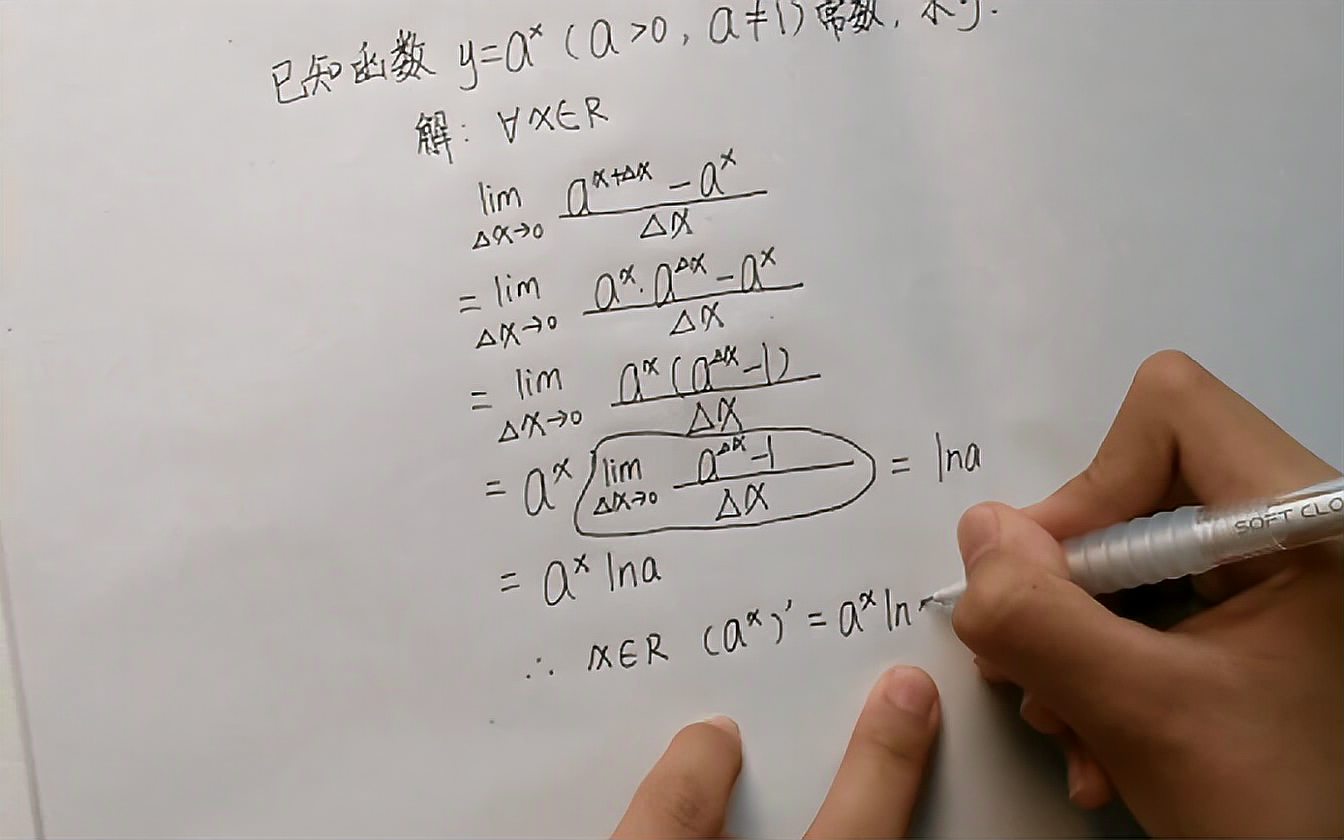 已知函数 y=aˣ (a>0, a≠1) 常数, 求y'
解: ∀x∈R
lim Δx→0 (a^(x+Δx) - a^x) / Δx
= lim Δx→0 (a^x · a^Δx - a^x) / Δx
= lim Δx→0 a^x (a^Δx - 1) / Δx
= a^x lim Δx→0 (a^Δx - 1) / Δx = lna
= a^x lna
∴ x∈R (a^x)' = a^x ln
SOFT CLO